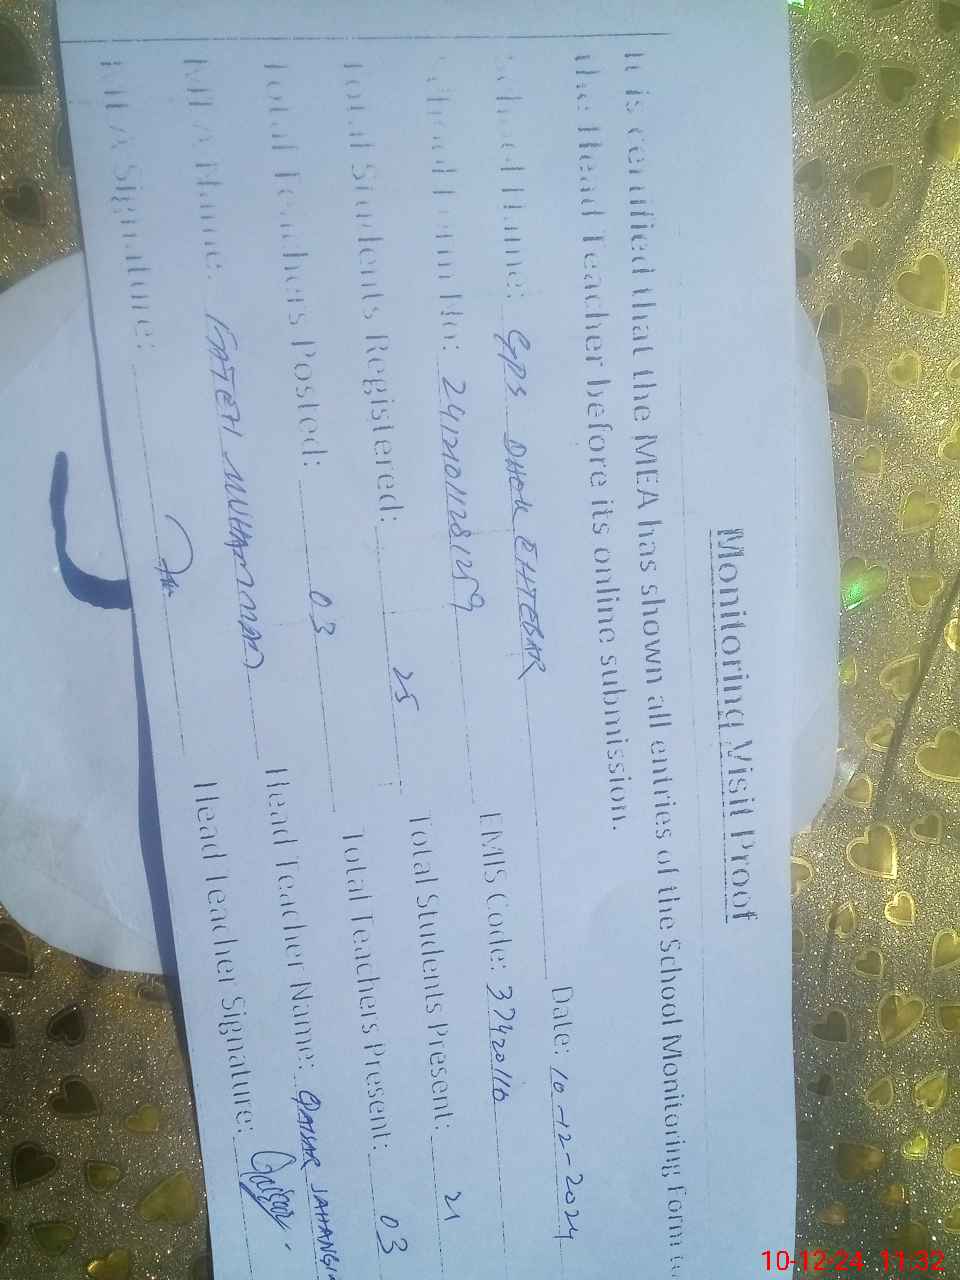 Monitoring Visit Proof
It is certified that the MEA has shown all entries of the School Monitoring Form to
the Head Teacher before its online submission.
School Name: GPS DHOK EHTEBAR Date: 10-12-2024
School Form No: EMIS Code: 37420116
Total Students Registered: 25 Total Students Present: 21
Total Teachers Posted: 03 Total Teachers Present: 03
MEA Name: FATEH MUHAMMAD Head Teacher Name: QAISAR JAHANGI
MEA Signature: Head Teacher Signature:
10-12-24 11:32